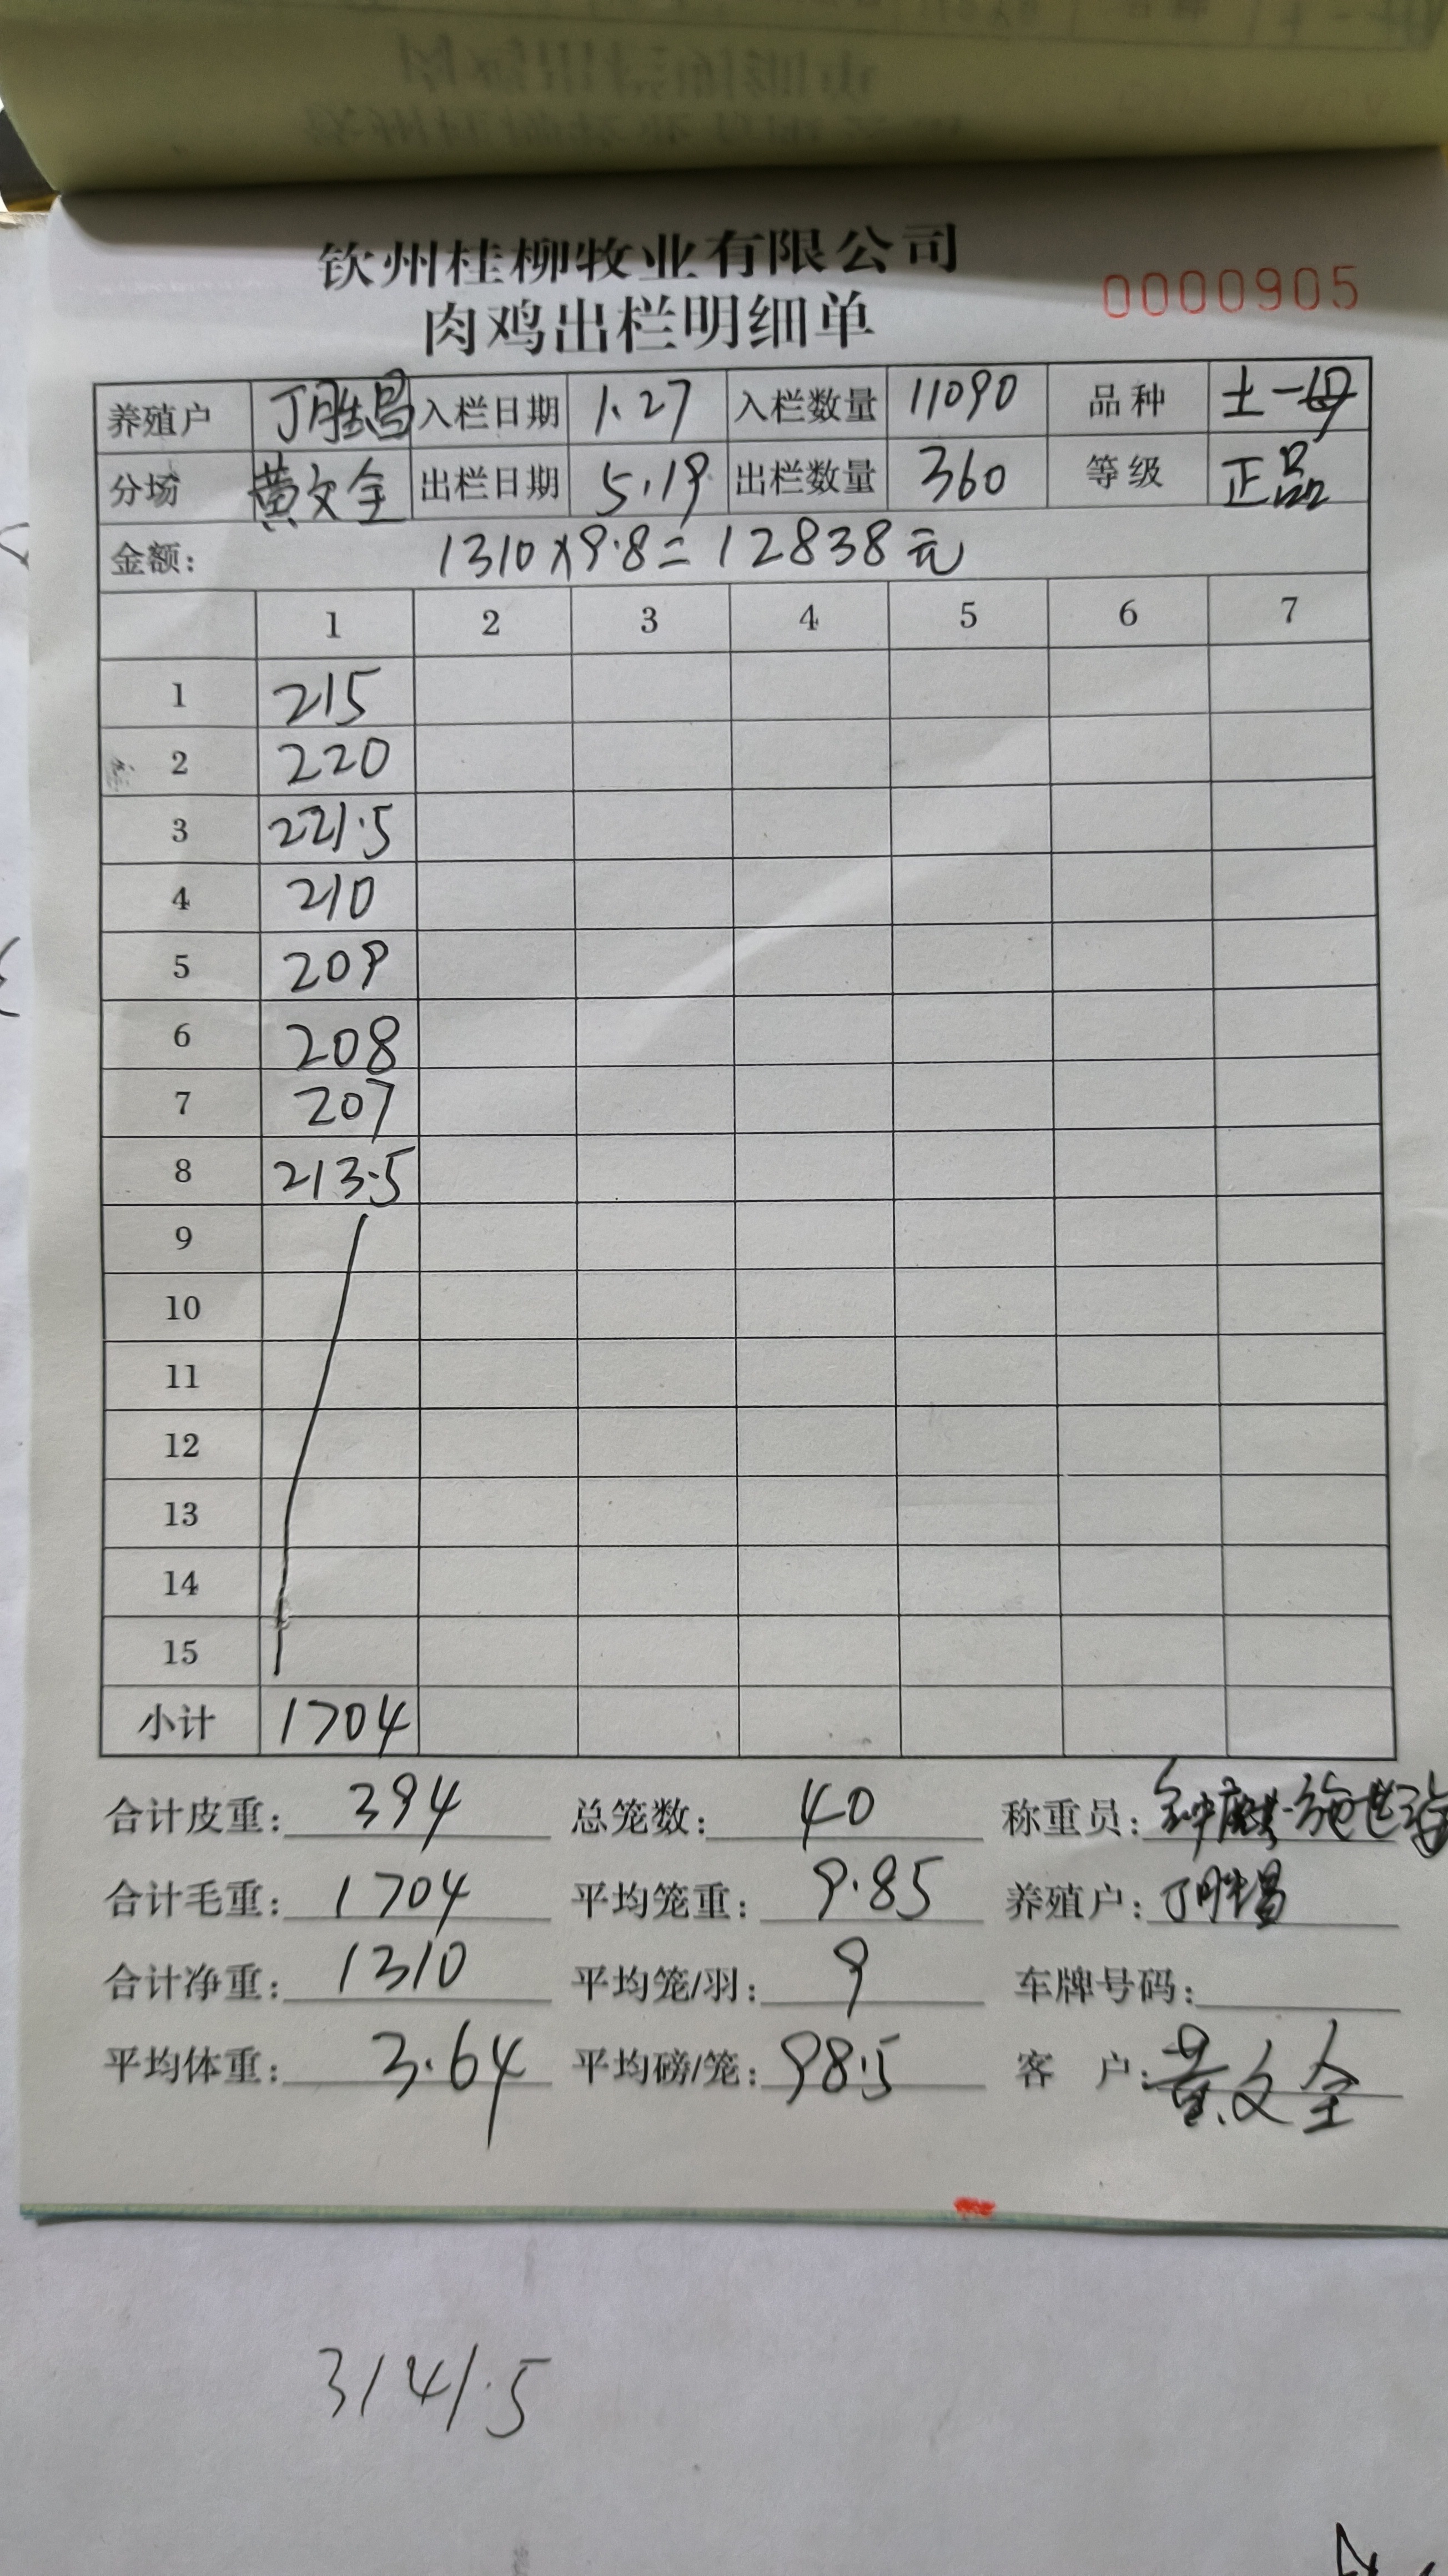 钦州桂柳牧业有限公司
肉鸡出栏明细单
0000905
养殖户 丁胜昌 入栏日期 1.27 入栏数量 11090 品种 土一母
分场 黄文全 出栏日期 5.19 出栏数量 360 等级 正品
金额: 1310×9.8=12838元
1 2 3 4 5 6 7
1 215
2 220
3 221.5
4 210
5 209
6 208
7 207
8 213.5
9
10
11
12
13
14
15
小计 1704
合计皮重: 394 总笼数: 40 称重员:
合计毛重: 1704 平均笼重: 9.85 养殖户: 丁胜昌
合计净重: 1310 平均笼/羽: 9 车牌号码:
平均体重: 3.64 平均磅/笼: 98.5 客 户: 黄文全
3141.5